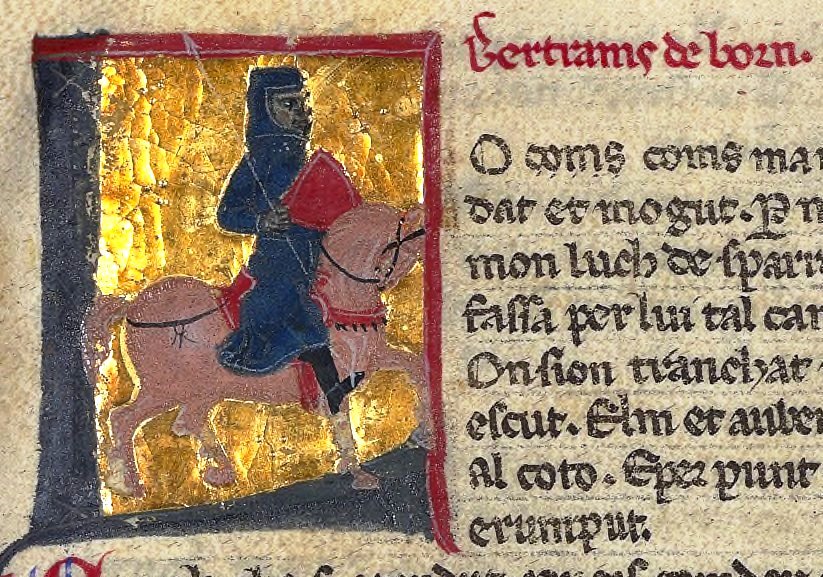 Bertrams de born.
O coms coms man
dat et mogut. P n
mon luch de sparr
fassa per lui tal can
On sion tranchat
escut. Elm et auber
Al coto. Eper punt
erumput.